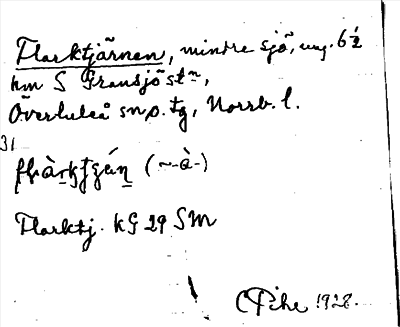 Flarktjärnen, mindre sjö, ung. 6½
km S Gransjöstn,
Överluleå sn o. tg, Norrb. l.
31
Flarktj. KG 29 SM
C Pihl 1928.